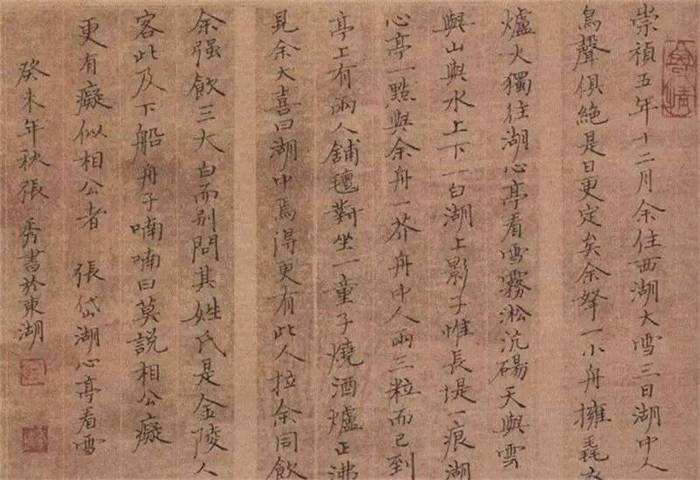 崇禎五年十二月余住西湖大雪三日湖中人
鳥聲俱絶是日更定矣余拏一小舟擁毳衣
爐火獨往湖心亭看雪霧淞沆碭天與雲
與山與水上下一白湖上影子惟長堤一痕湖
心亭一點與余舟一芥舟中人兩三粒而已到
亭上有兩人鋪氊對坐一童子燒酒爐正沸
見余大喜曰湖中焉得更有此人拉余同飲
余强飲三大白而別問其姓氏是金陵人
客此及下船舟子喃喃曰莫說相公癡
更有癡似相公者 張岱湖心亭看雪
癸未年秋張秀書於東湖